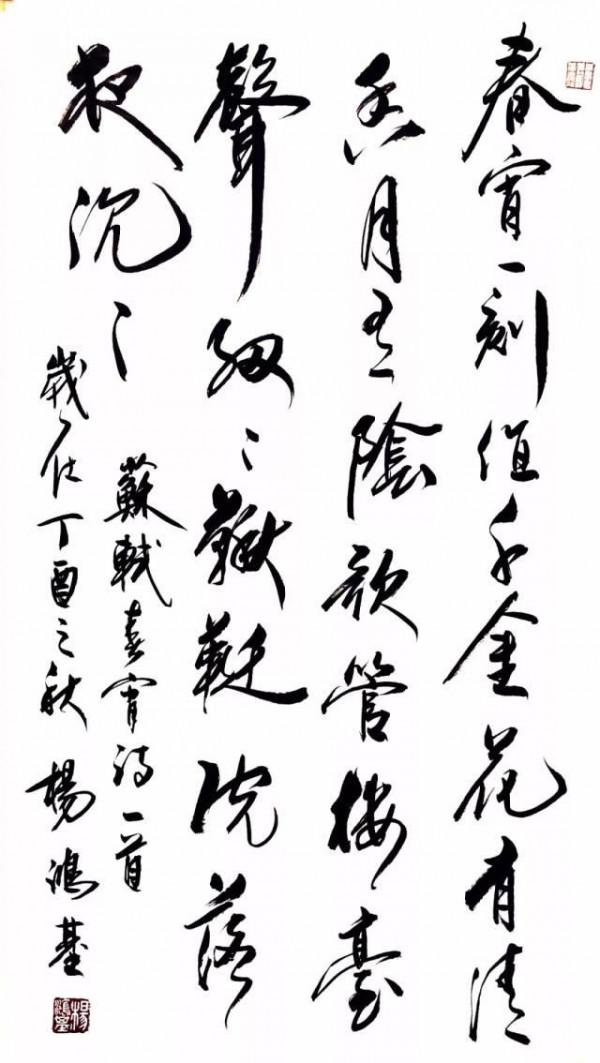 春宵一刻值千金花有清
香月有陰歌管樓臺
聲細〻鞦韆院落
夜沉〻
蘇軾春宵詩一首
歲在丁酉之秋楊鴻基
楊鴻基